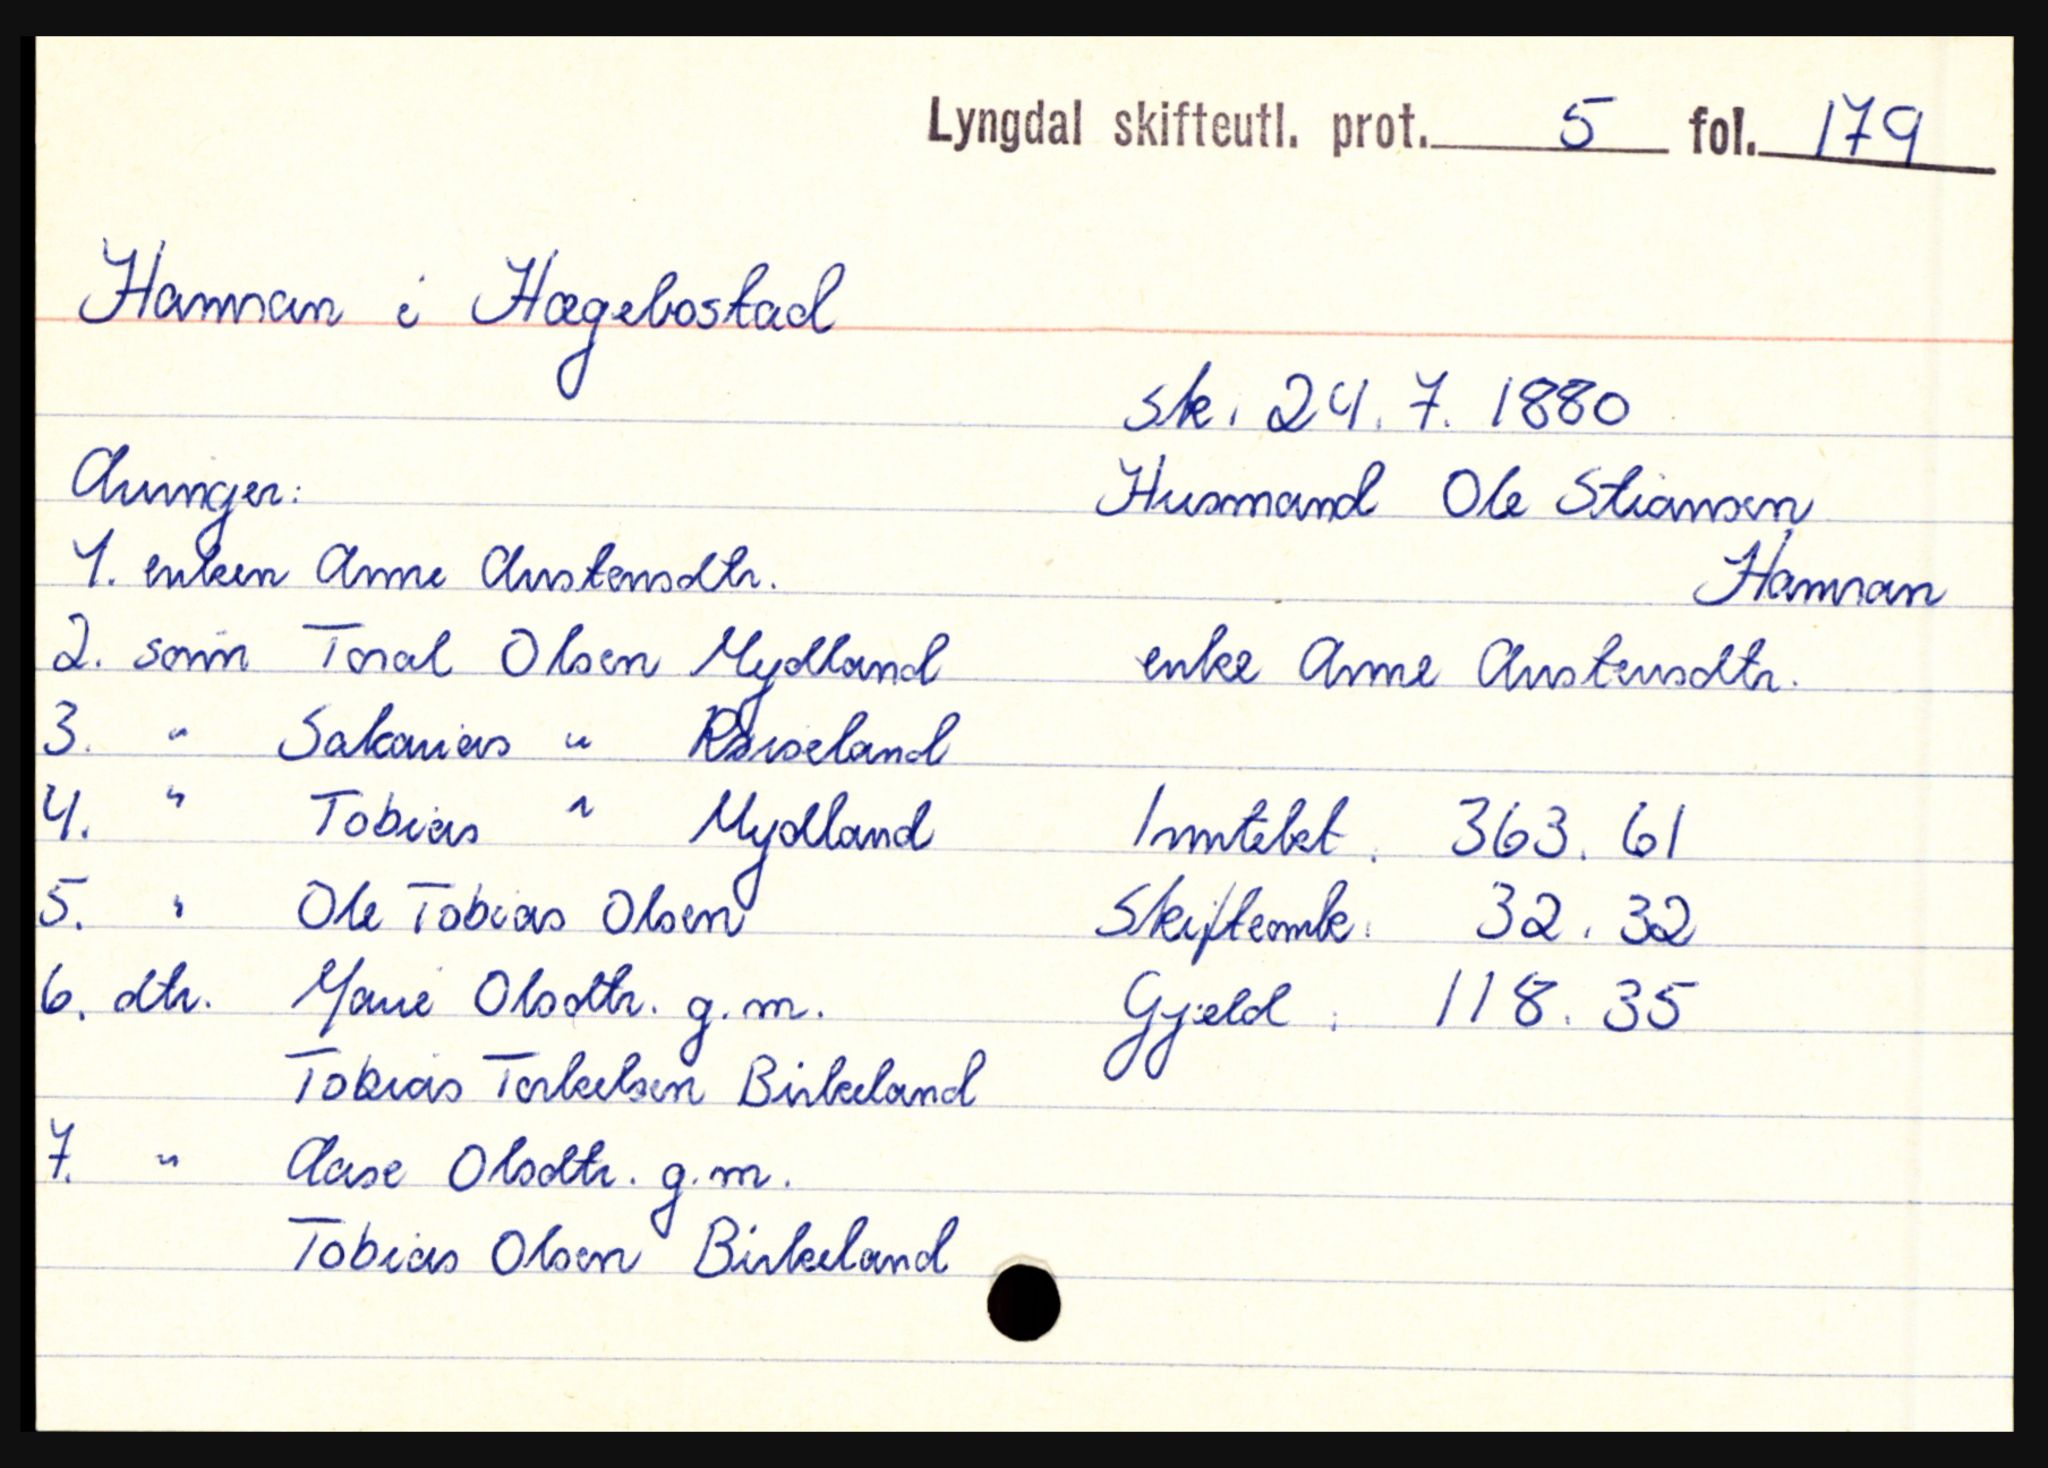 Lyngdal skifteutl. prot. 5 fol. 179
Hamran i Hægebostad
sk. 24.7.1880
Husmand Ole Stiansen
Hamran
enke Anne Austensdtr.
Inntekt. 363.61
Skifteomk. 32.32
Gjeld. 118.35
Arvinger:
1. enken Anne Austensdtr.
2. sønn Toral Olsen Mydland
3. " Sakarias "
4. " Tobias " Mydland
5. " Ole Tobias Olsen
6. dtr. Marie Olsdtr. g.m.
Tobias Torkelsen Birkeland
7. " Aase Olsdtr. g.m.
Tobias Olsen Birkeland